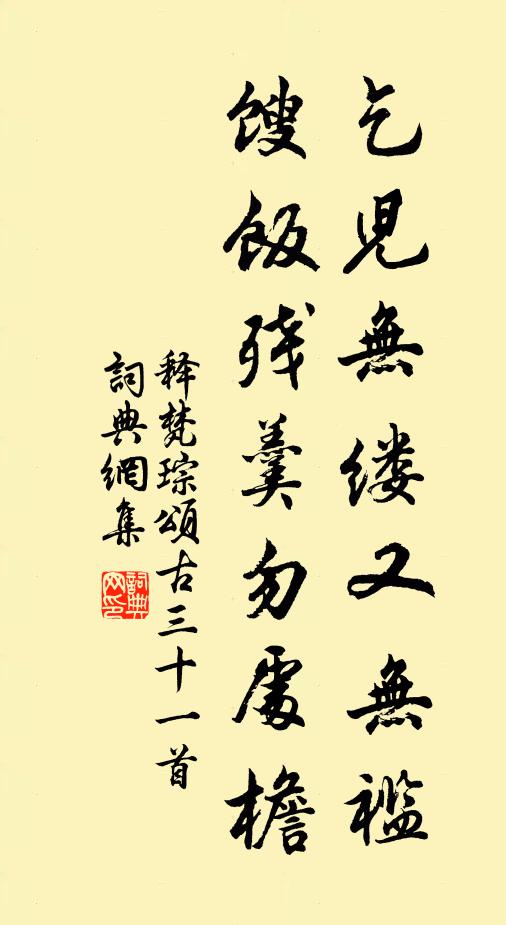 乞兒無缕又無褴
餿飯残羹勿處檐
释梵琮頌古三十一首
詞典網集
詞典网印